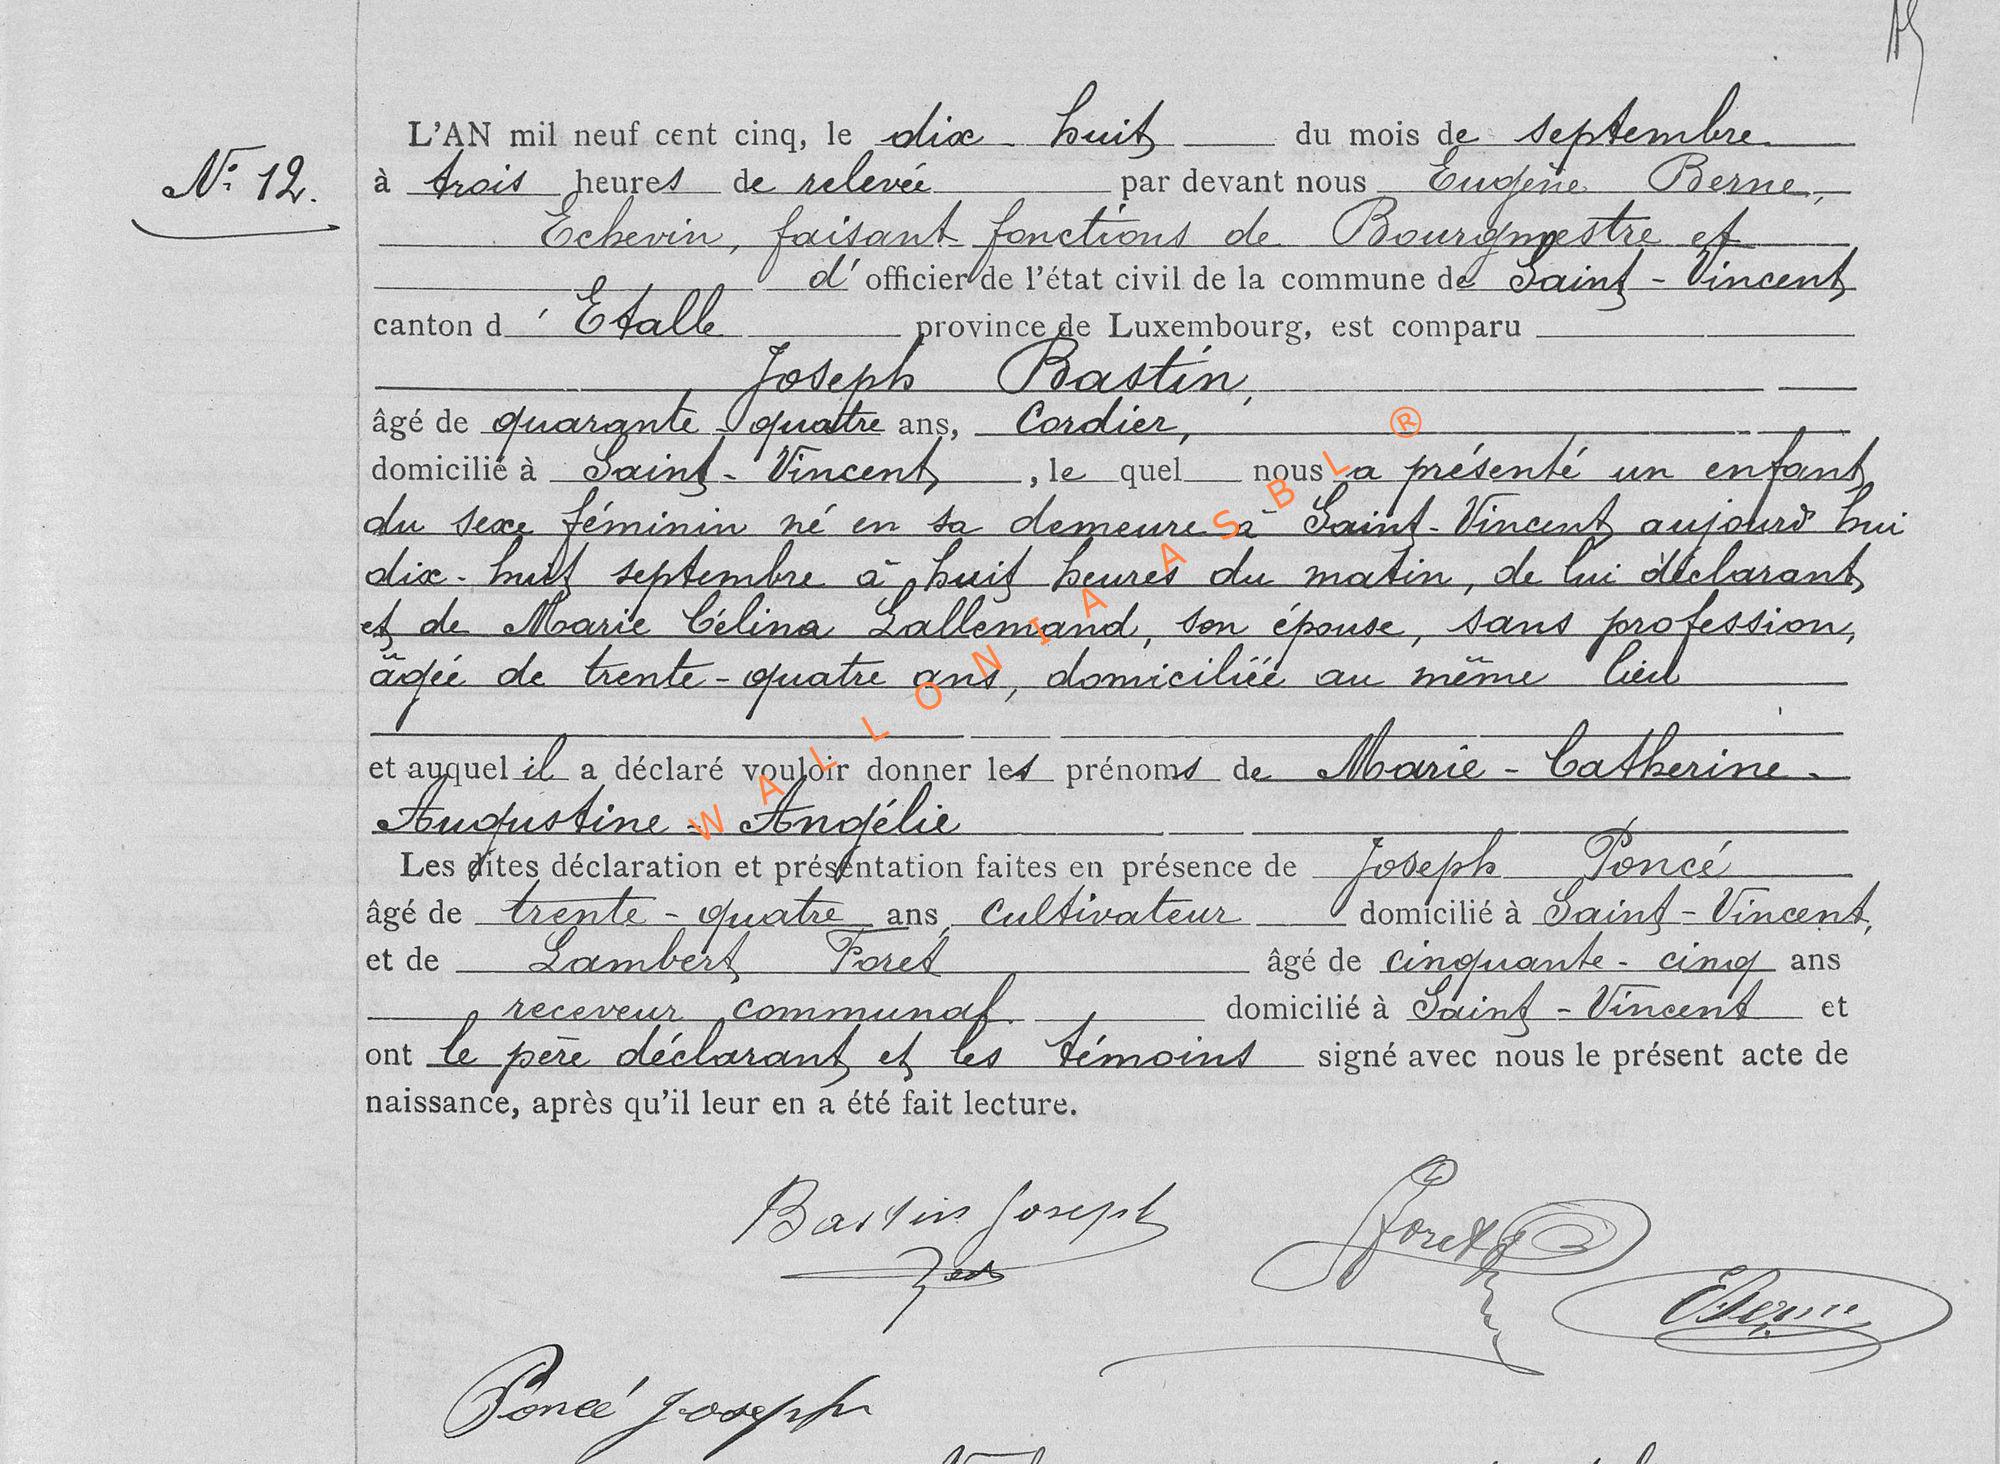 N° 12.
L'AN mil neuf cent cinq, le dix-huit du mois de septembre
à trois heures de relevée par devant nous Eugène Berne,
Echevin, faisant fonctions de Bourgmestre et
d'officier de l'état civil de la commune de Saint-Vincent
canton d'Etalle province de Luxembourg, est comparu
Joseph Bastin,
âgé de quarante-quatre ans, cordier,
domicilié à Saint-Vincent, le quel nous a présenté un enfant
du sexe féminin né en sa demeure à Saint-Vincent aujourd'hui
dix-huit septembre à huit heures du matin, de lui déclarant
et de Marie Célina Lallemand, son épouse, sans profession,
âgée de trente-quatre ans, domiciliée au même lieu
et auquel il a déclaré vouloir donner les prénoms de Marie-Catherine-
Augustine-Angélie
Les dites déclaration et présentation faites en présence de Joseph Poncé
âgé de trente-quatre ans, cultivateur domicilié à Saint-Vincent,
et de Lambert Foret âgé de cinquante-cinq ans
receveur communal domicilié à Saint-Vincent et
ont le père déclarant et les témoins signé avec nous le présent acte de
naissance, après qu'il leur en a été fait lecture.
Bastin Joseph
Foret
EBerne
Poncé Joseph
WALLONIA ASBL ®